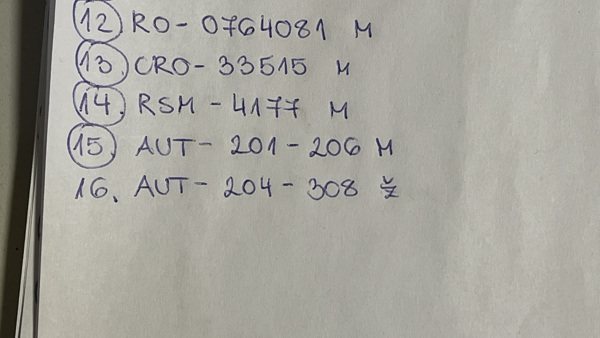 12. RO - 0764081 M
13. CRO - 33515 M
14. RSM - 4177 M
15. AUT - 201 - 206 M
16. AUT - 204 - 308 Ž